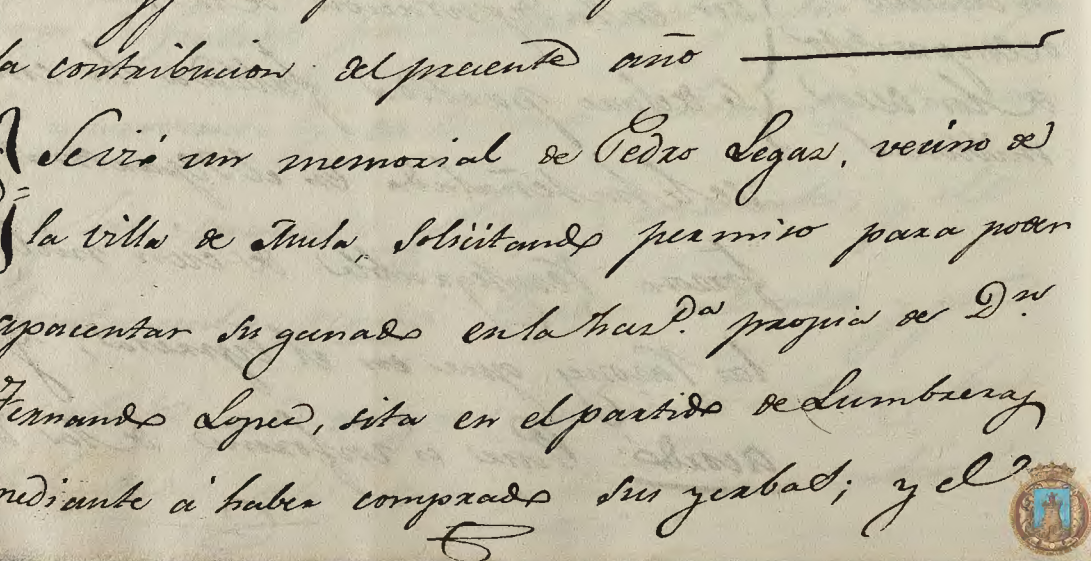 la contribucion del preciente año
Se vió un memorial de Pedro Legaz, vecino de
la villa de Mula, solicitando permiso para poder
apacentar su ganado en la haz.da propia de Dn.
Fernando Lopez, sita en el partido de Lumbreras
mediante á haber comprado sus yerbas; y el